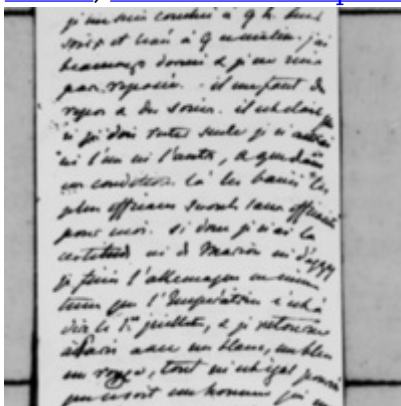 je me suis couchée à 9 h. hier
soir et levée à 9 ce matin. j'ai
beaucoup dormi & je me suis
pas reposée. il me faut du
repos & des soins. il est clair que
si je dois rester seule je n'aurai
ni l'un ni l'autre, & que dans
ces conditions là les bains les
plus efficaces seront sans efficacité
pour moi. si donc je n'ai la
certitude ni de Marion ni d'
je finis l'allemagne en même
tems que l'Impératrice c'est à
dire le 1er juillet, & je retourne
à Paris avec un blanc, un bleu
un rouge, tout m'est égal pourvu
que ce soit un homme